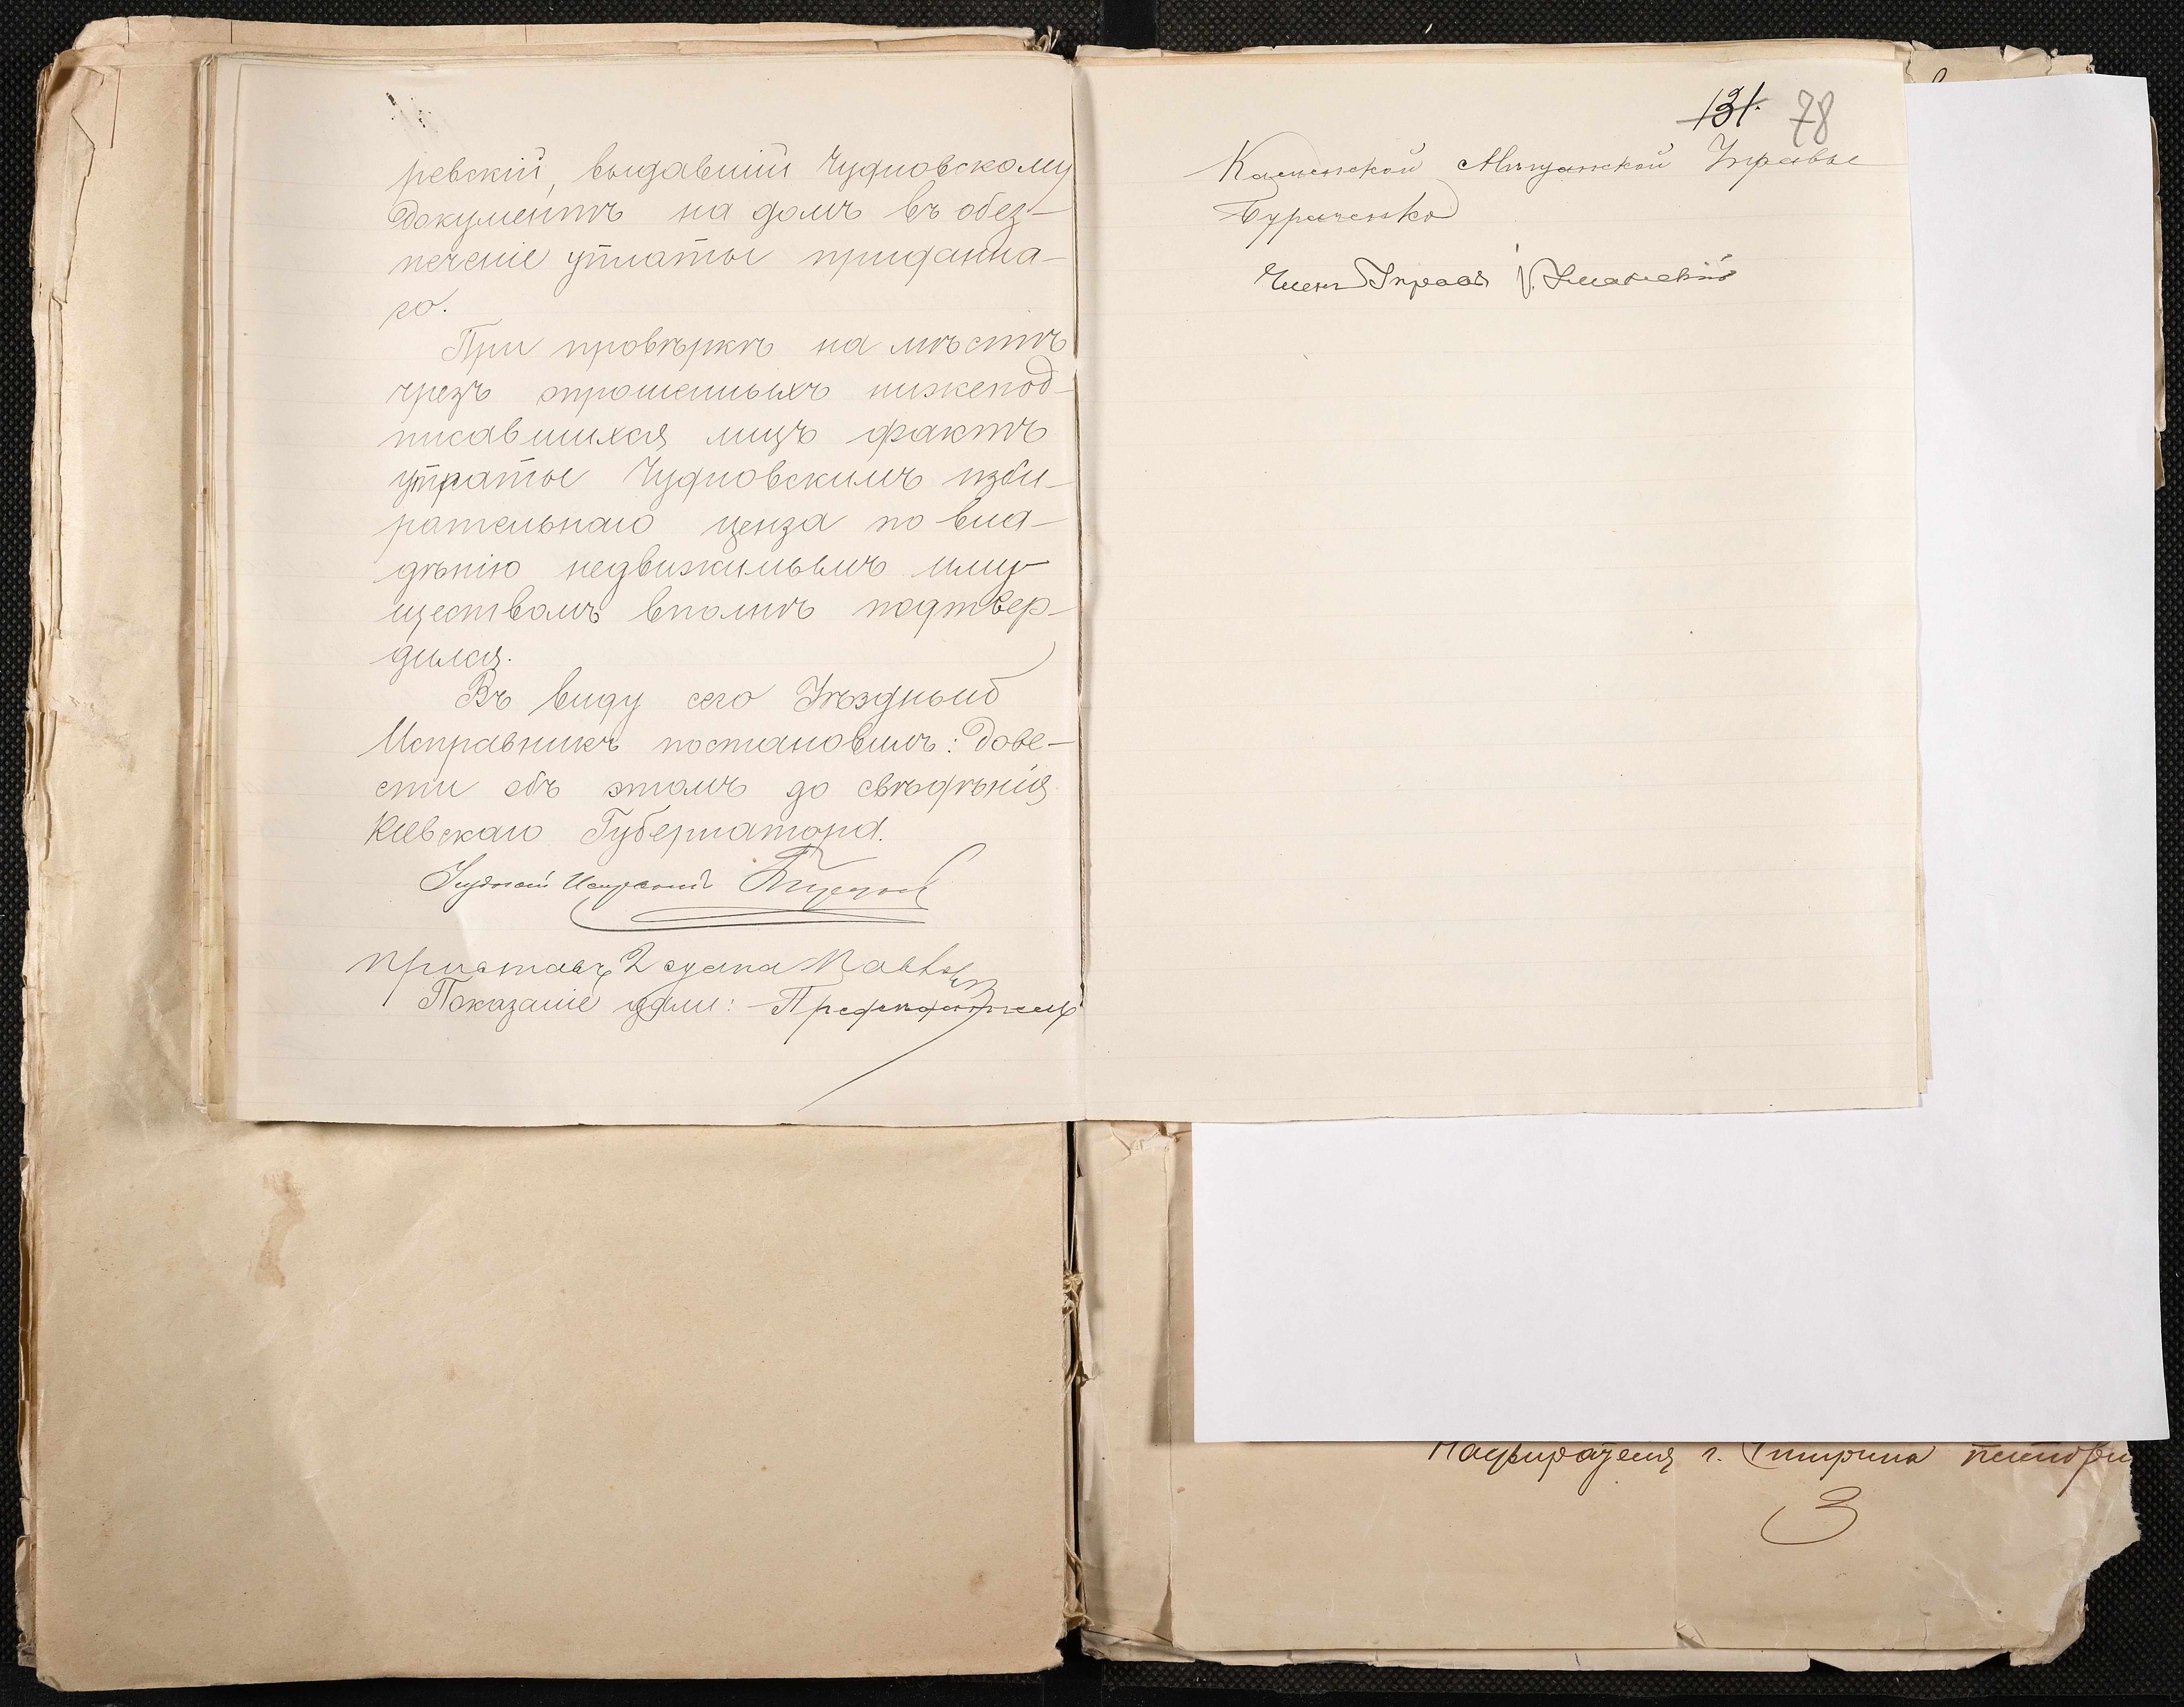 ревскій, выдавшій Чудновскому
документъ на домъ въ обез-
печеніе уплаты приданна-
го.
При провѣркѣ на мѣстѣ
чрезъ опрошенныхъ нижепод-
писавшихся лицъ фактъ
утраты Чудновскимъ изби-
рательнаго ценза по вла-
дѣнію недвижимымъ иму-
ществомъ вполнѣ подтвер-
дился.
Въ виду сего Уѣздный
Исправникъ постановилъ: дове-
сти объ этомъ до свѣдѣнія
Кіевскаго Губернатора.
Уѣздный Исправникъ
Приставъ 2 стана
Показаніе дали: Предсѣдатель
131. 78
Каменской Мѣщанской Управы
Буриченко
Членъ Управы
г.
3